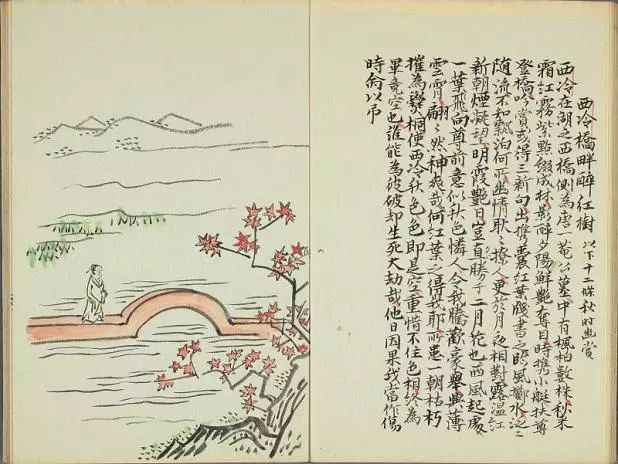 西泠橋畔醉紅樹 以下十二條秋時幽賞
西泠在湖之西橋側為唐一菴公墓中有楓柏數株秋来
霜紅霧紫點綴成林影醉夕陽鮮艷奪目時携小艇扶尊
登橋吟賞或得一二新句出携囊紅葉牋書之臨風擲水泛々
随流不知飄泊何所幽情耿々撩人更於月夜相對露濕紅
新朝煙凝望明霞艷日豈直勝于二月花也西風起處
一葉飛向尊前意似秋色憐人令我騰歡豪舉興薄
雲霄翩々然神爽哉何紅葉之得我耶所患一朝枯朽
摧為爨桐使西泠秋色色即是空重惜不住色相終為
畢竟空也誰能為彼破却生死大劫哉他日因果我當作傷
時命以弔